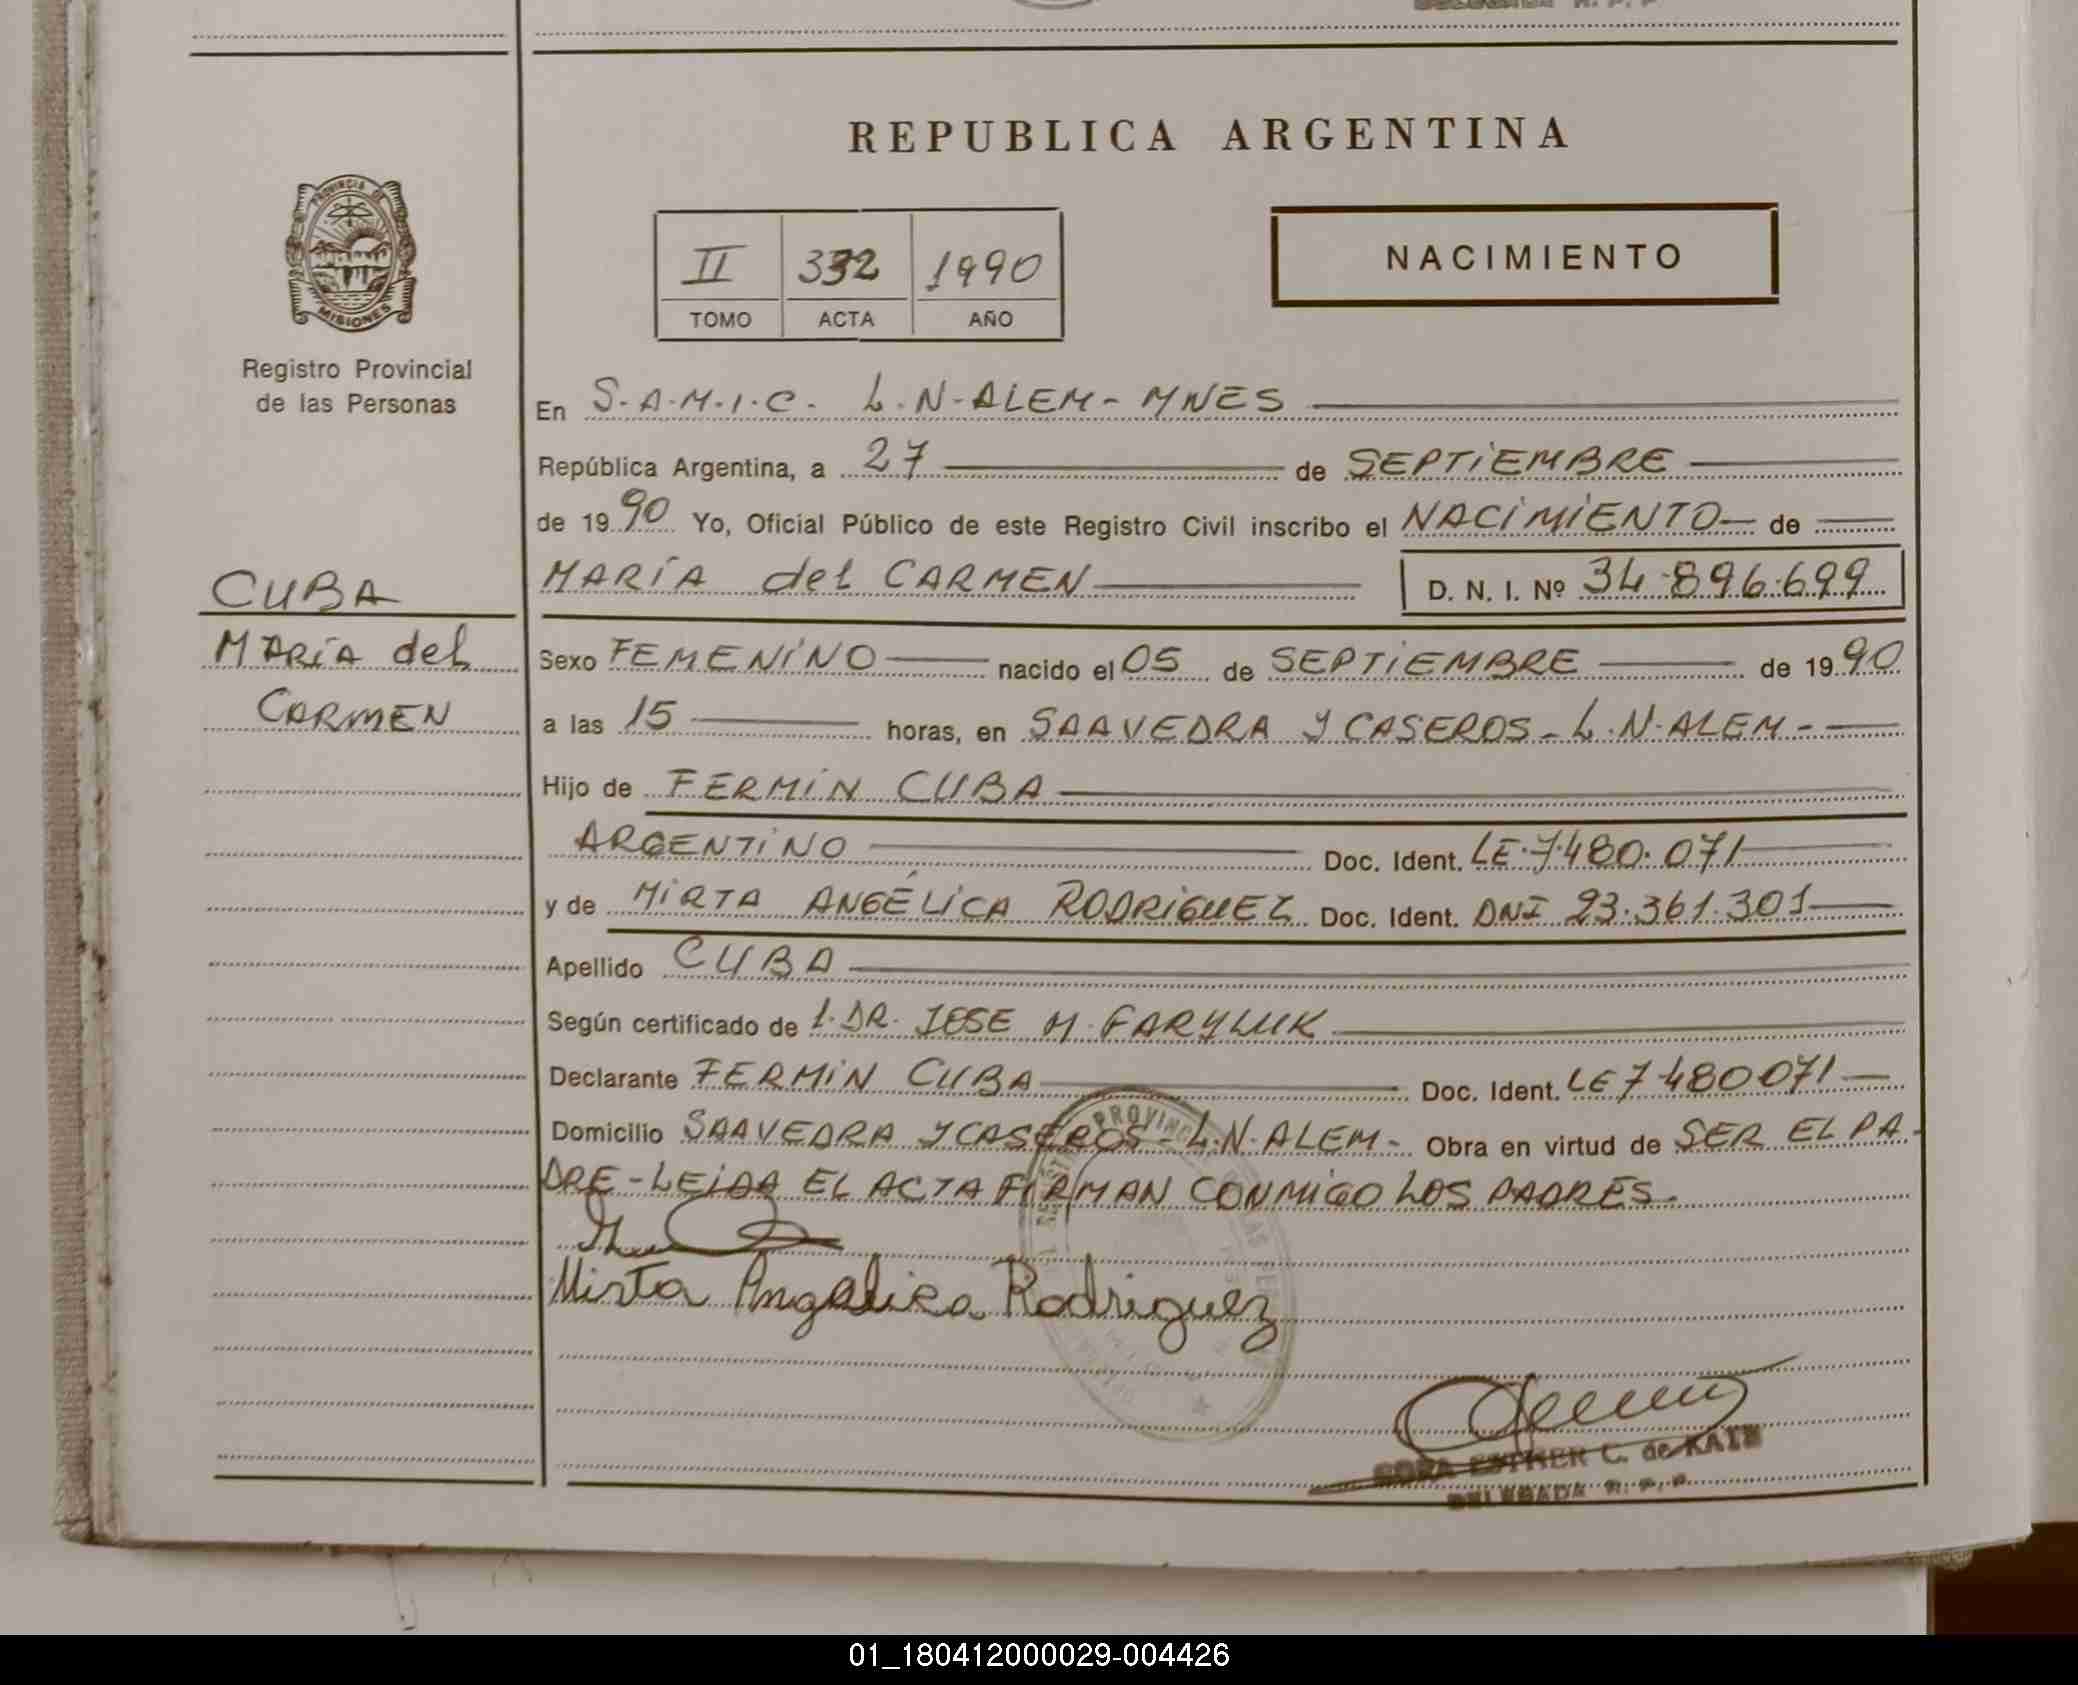 REPUBLICA ARGENTINA
PROVINCIA DE
MISIONES
Registro Provincial
de las Personas
II 332 1990
TOMO ACTA AÑO
NACIMIENTO
CUBA
MARÍA del
CARMEN
En S.A.M.I.C. L.N.ALEM-MNES
República Argentina, a 27 de SEPTIEMBRE
de 1990 Yo, Oficial Público de este Registro Civil inscribo el NACIMIENTO de
MARÍA del CARMEN D. N. I. Nº 34.896.699
Sexo FEMENINO nacido el 05 de SEPTIEMBRE de 1990
a las 15 horas, en SAAVEDRA Y CASEROS-L.N.ALEM-
Hijo de FERMIN CUBA
ARGENTINO Doc. Ident. LE.7.480.071
y de MIRTA ANGÉLICA RODRIGUEZ Doc. Ident. DNI 23.361.301
Apellido CUBA
Según certificado de 1.DR. JOSE M. GARYLUK
Declarante FERMIN CUBA Doc. Ident. LE 7480071
Domicilio SAAVEDRA Y CASEROS-L.N.ALEM- Obra en virtud de SER EL PA-
DRE-LEIDA EL ACTA FIRMAN CONMIGO LOS PADRES.
Mirta Angelica Rodriguez
ESTHER C. de KATZ
DELEGADA R. P. P.
01_180412000029-004426